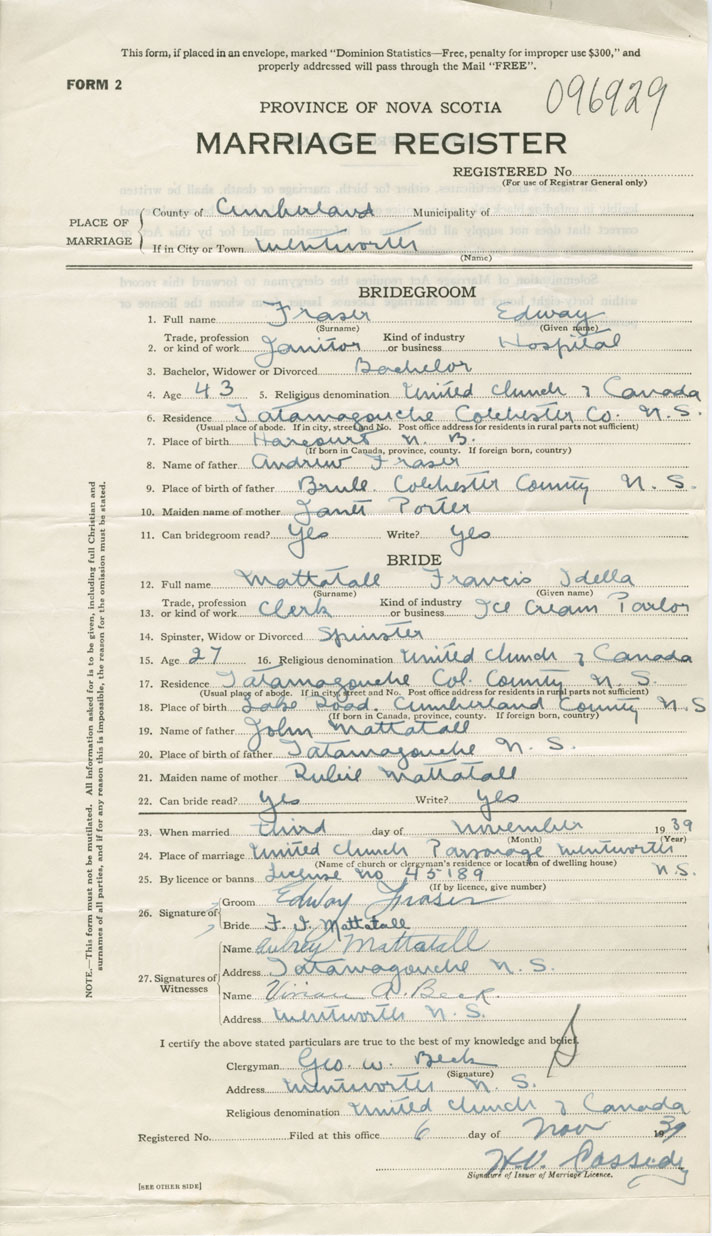 This form, if placed in an envelope, marked "Dominion Statistics—Free, penalty for improper use $300," and
properly addressed will pass through the Mail "FREE".
FORM 2
096929
PROVINCE OF NOVA SCOTIA
MARRIAGE REGISTER
REGISTERED No.
(For use of Registrar General only)
PLACE OF MARRIAGE
County of Cumberland Municipality of
If in City or Town Wentworth
(Name)
BRIDEGROOM
1. Full name Fraser Edway
(Surname) (Given name)
2. Trade, profession or kind of work Janitor Kind of industry or business Hospital
3. Bachelor, Widower or Divorced Bachelor
4. Age 43 5. Religious denomination United Church of Canada
6. Residence Tatamagouche Colchester Co. N.S.
(Usual place of abode. If in city, street and No. Post office address for residents in rural parts not sufficient)
7. Place of birth Harcourt N. B.
(If born in Canada, province, county. If foreign born, country)
8. Name of father Andrew Fraser
9. Place of birth of father Brule Colchester County N. S.
10. Maiden name of mother Janet Porter
11. Can bridegroom read? Yes Write? Yes
BRIDE
12. Full name Mattatall Francis Idella
(Surname) (Given name)
13. Trade, profession or kind of work Clerk Kind of industry or business Ice Cream Parlor
14. Spinster, Widow or Divorced Spinster
15. Age 27 16. Religious denomination United Church of Canada
17. Residence Tatamagouche Col. County N. S.
(Usual place of abode. If in city, street and No. Post office address for residents in rural parts not sufficient)
18. Place of birth Lake Road. Cumberland County N.S
(If born in Canada, province, county. If foreign born, country)
19. Name of father John Mattatall
20. Place of birth of father Tatamagouche N. S.
21. Maiden name of mother Rubie Mattatall
22. Can bride read? Yes Write? Yes
23. When married third day of November 1939
(Month) (Year)
24. Place of marriage United Church Parsonage Wentworth
(Name of church or clergyman's residence or location of dwelling house)
N.S.
25. By licence or banns License no 45189
(If by licence, give number)
26. Signature of
Groom Edway Fraser
Bride F. I. Mattatall
27. Signatures of Witnesses
Name Aubrey Mattatall
Address Tatamagouche N. S.
Name Vivian A. Beck.
Address Wentworth N. S.
I certify the above stated particulars are true to the best of my knowledge and belief.
Clergyman Geo. W. Beck
(Signature)
Address Wentworth N. S.
Religious denomination United Church of Canada
Registered No. Filed at this office 6 day of Nov 1939
H.V. Cassidy
Signature of Issuer of Marriage Licence.
[SEE OTHER SIDE]
NOTE.—This form must not be mutilated. All information asked for is to be given, including full Christian and
surnames of all parties, and if for any reason this is impossible, the reason for the omission must be stated.